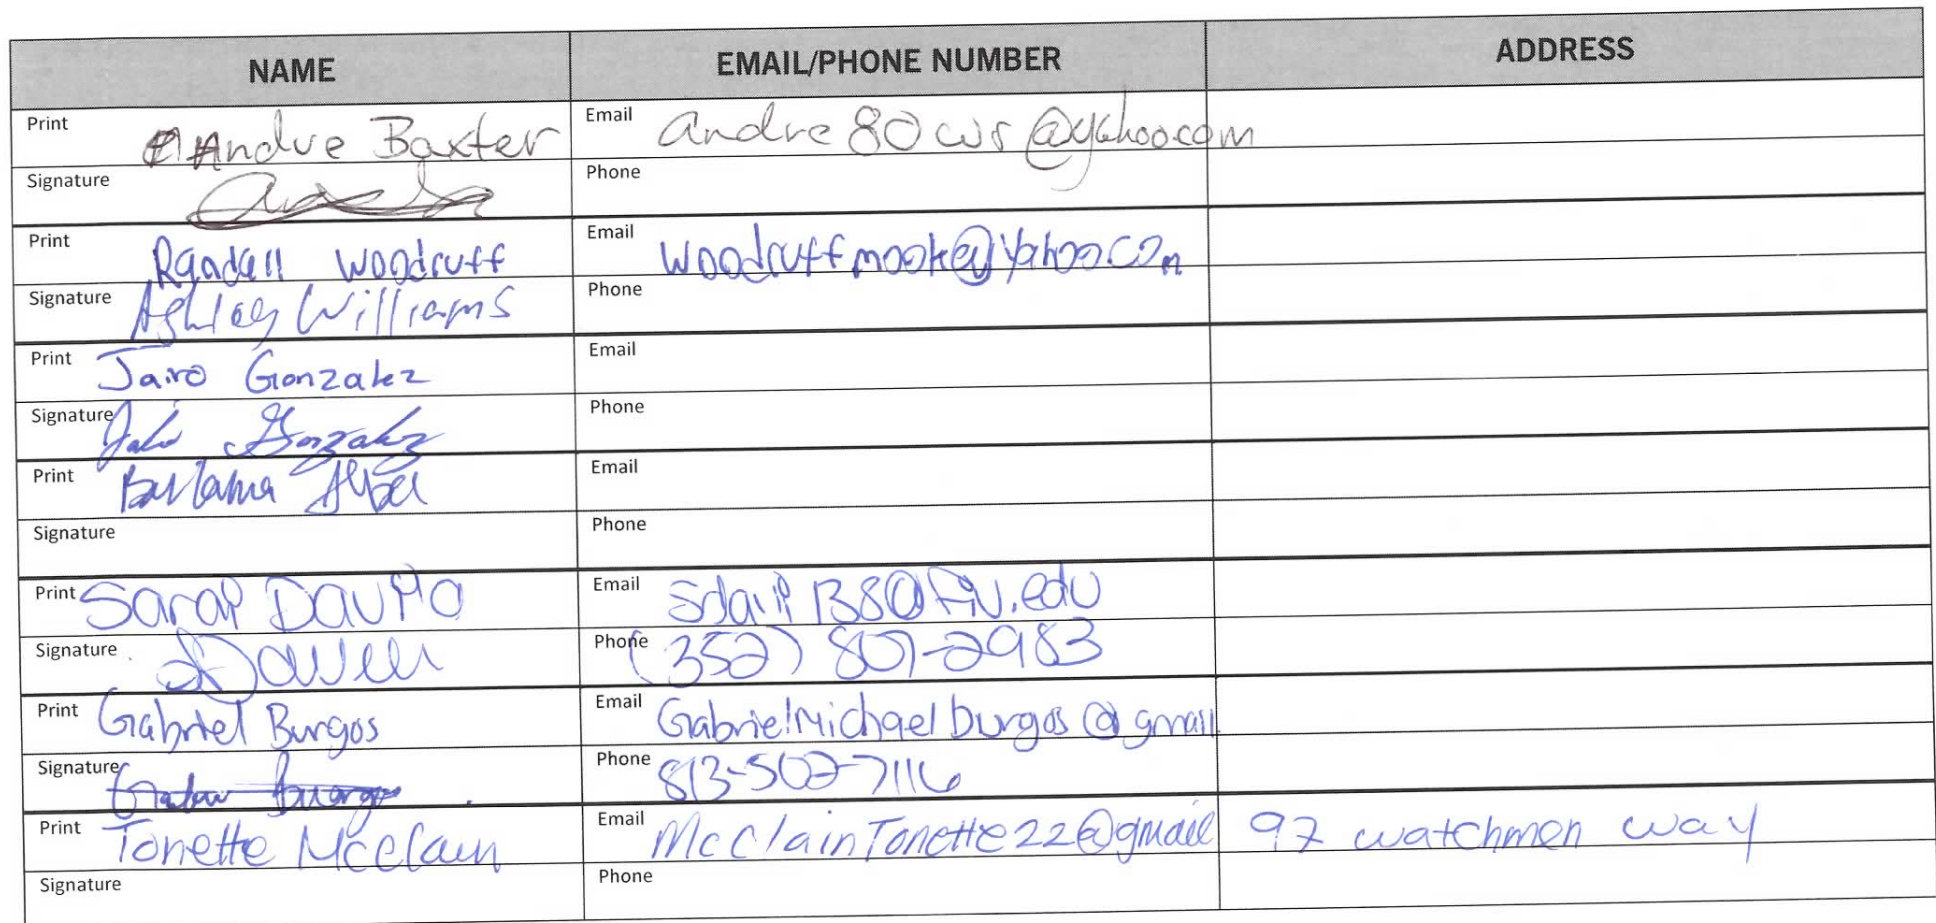 NAME EMAIL/PHONE NUMBER ADDRESS
Print Andre Baxter Email andre80wr@yahoo.com
Signature Phone
Print Randall Woodruff Email woodruffmook@yahoo.com
Signature Ashley Williams Phone
Print Jairo Gonzalez Email
Signature Jairo Gonzalez Phone
Print Email
Signature Phone
Print Sarai Davila Email
Signature Phone (352) 807-2983
Print Gabriel Burgos Email GabrielMichaelburgos@gmail
Signature Phone 813-507-7116
Print Tonette McClain Email McClainTonette22@gmail 97 watchmen way
Signature Phone